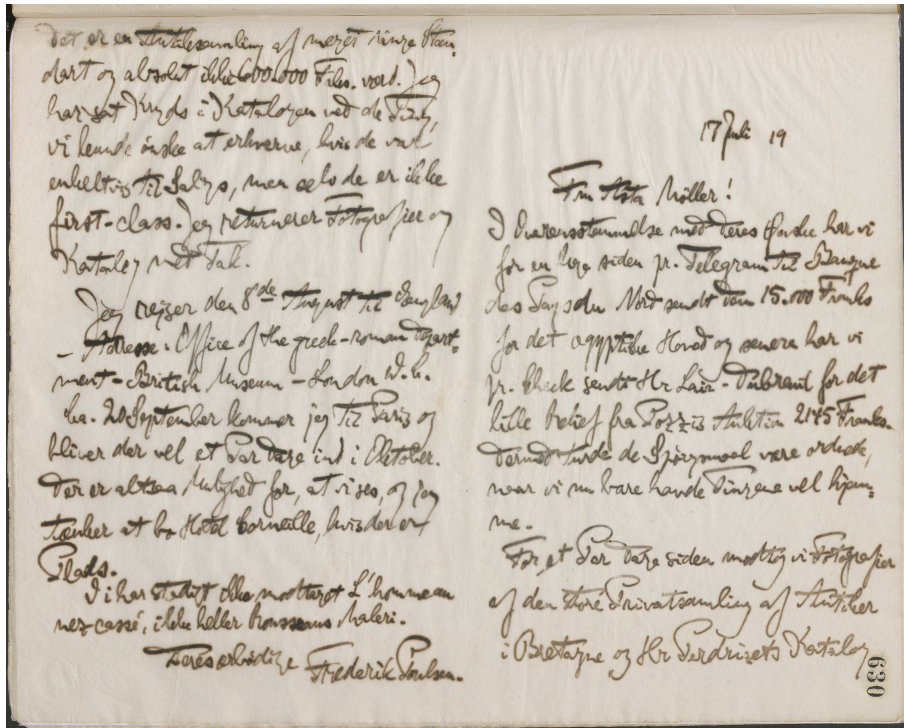 Det er en Antiksamling af meget ringe Stan-
dart og absolut ikke 600.000 Frks. værd. Jeg
har sat Kryds i Katalogen ved de Ting,
vi kunde ønske at erhverve, hvis de var
enkeltvis til Salgs, men selv de er ikke
first-class. Jeg returnerer Fotografier og
Katalog med Tak.
Jeg rejser den 8de August til England
- Adresse: Office of the greek-roman Depart-
ment - British Museum - London W.C.
Ca. 20 September kommer jeg til Paris og
bliver der vel et Par Dage ind i Oktober.
Der er altsaa Mulighed for, at vi ses, og jeg
tænker at bo Hotel Corneille, hvis der er
Plads.
Vi har stadigt ikke modtaget L'homme au
nez cassé, ikke heller Rousseaus Maleri.
Deres ærbødige Frederik Poulsen.
17 Juli 19
Frk Asta Møller!
I Overensstemmelse med Deres Ønske har vi
for en Uge siden pr. Telegram til Banque
des Pays du Nord sendt dem 15.000 Franks
for det ægyptiske Hoved og senere har vi
pr. Check sendt Hr Lair-Dubreuil for det
lille Relief fra Pozzis Auktion 2145 Franks.
Dermed turde de Spørgsmaal være ordnede,
naar vi nu bare havde Tingene vel hjem-
me.
For et Par Dage siden modtog vi Fotografier
af den store Privatsamling af Antiker
i Bretagne og Hr Perdrizets Katalog
630